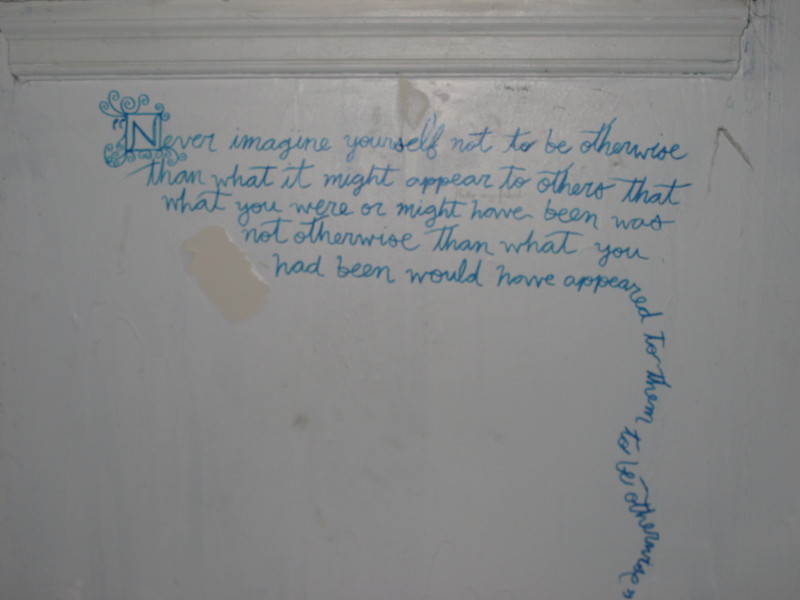 "Never imagine yourself not to be otherwise
than what it might appear to others that
what you were or might have been was
not otherwise than what you
had been would have appeared to them
to be otherwise."